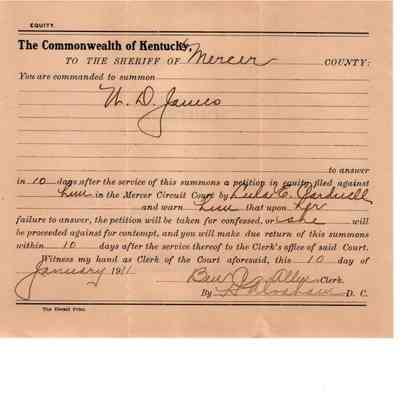 EQUITY.
The Commonwealth of Kentucky,
TO THE SHERIFF OF Mercer COUNTY:
You are commanded to summon
D. James
to answer
in 10 days after the service of this summons a petition in equity filed against
him in the Mercer Circuit Court by Lula E. Cardwell
and warn him that upon her
failure to answer, the petition will be taken for confessed, or she will
be proceeded against for contempt, and you will make due return of this summons
within 10 days after the service thereof to the Clerk's office of said Court.
Witness my hand as Clerk of the Court aforesaid, this 10 day of
January 1911 Ben Allen Clerk.
By D. C.
The Herald Print.